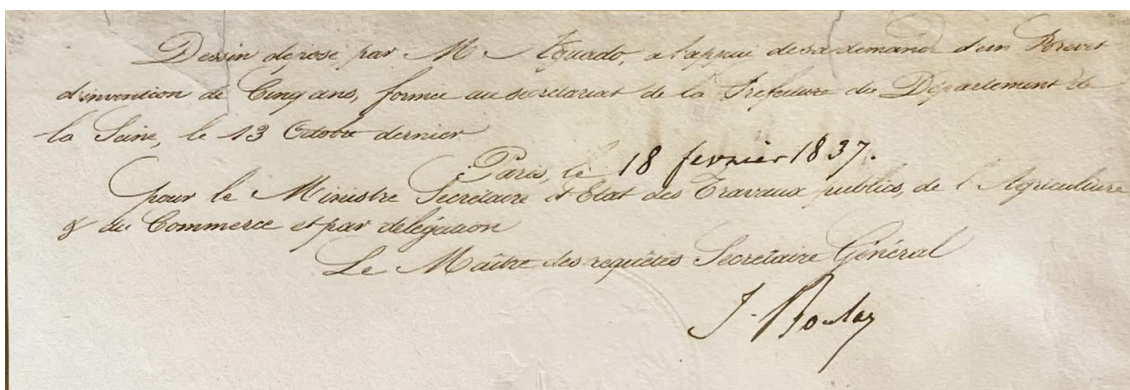 Dessin déposé par M Aguado, a l'appui de sa demande d'un Brevet
d'invention de Cinq ans, formée au secrétariat de la Préfecture du Département de
la Seine, le 13 Octobre dernier
Paris, le 18 fevrier 1837.
pour le Ministre Secrétaire d'Etat des Travaux publics, de l'Agriculture
& du Commerce et par délégation
Le Maître des requêtes Secrétaire Général
J. Boulay